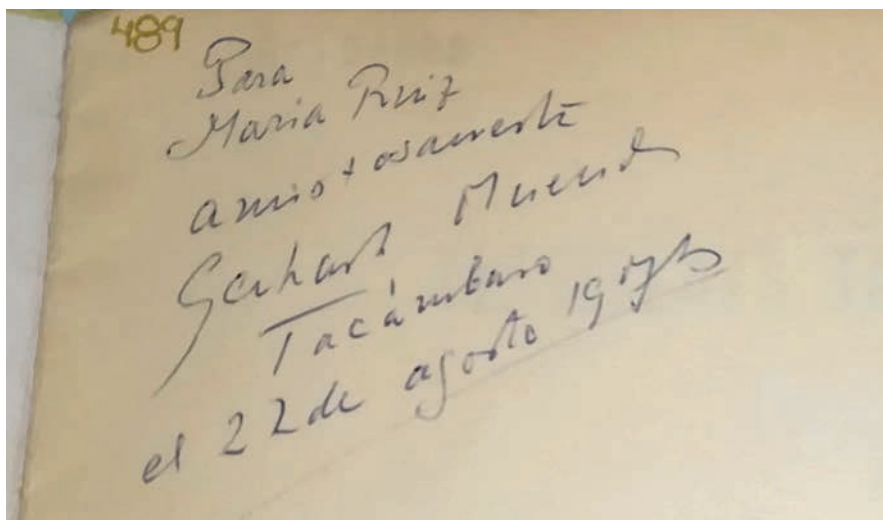 489
Para
Maria Ruiz
amistosamente
Gerhart Muench
Tacámbaro
el 22 de agosto